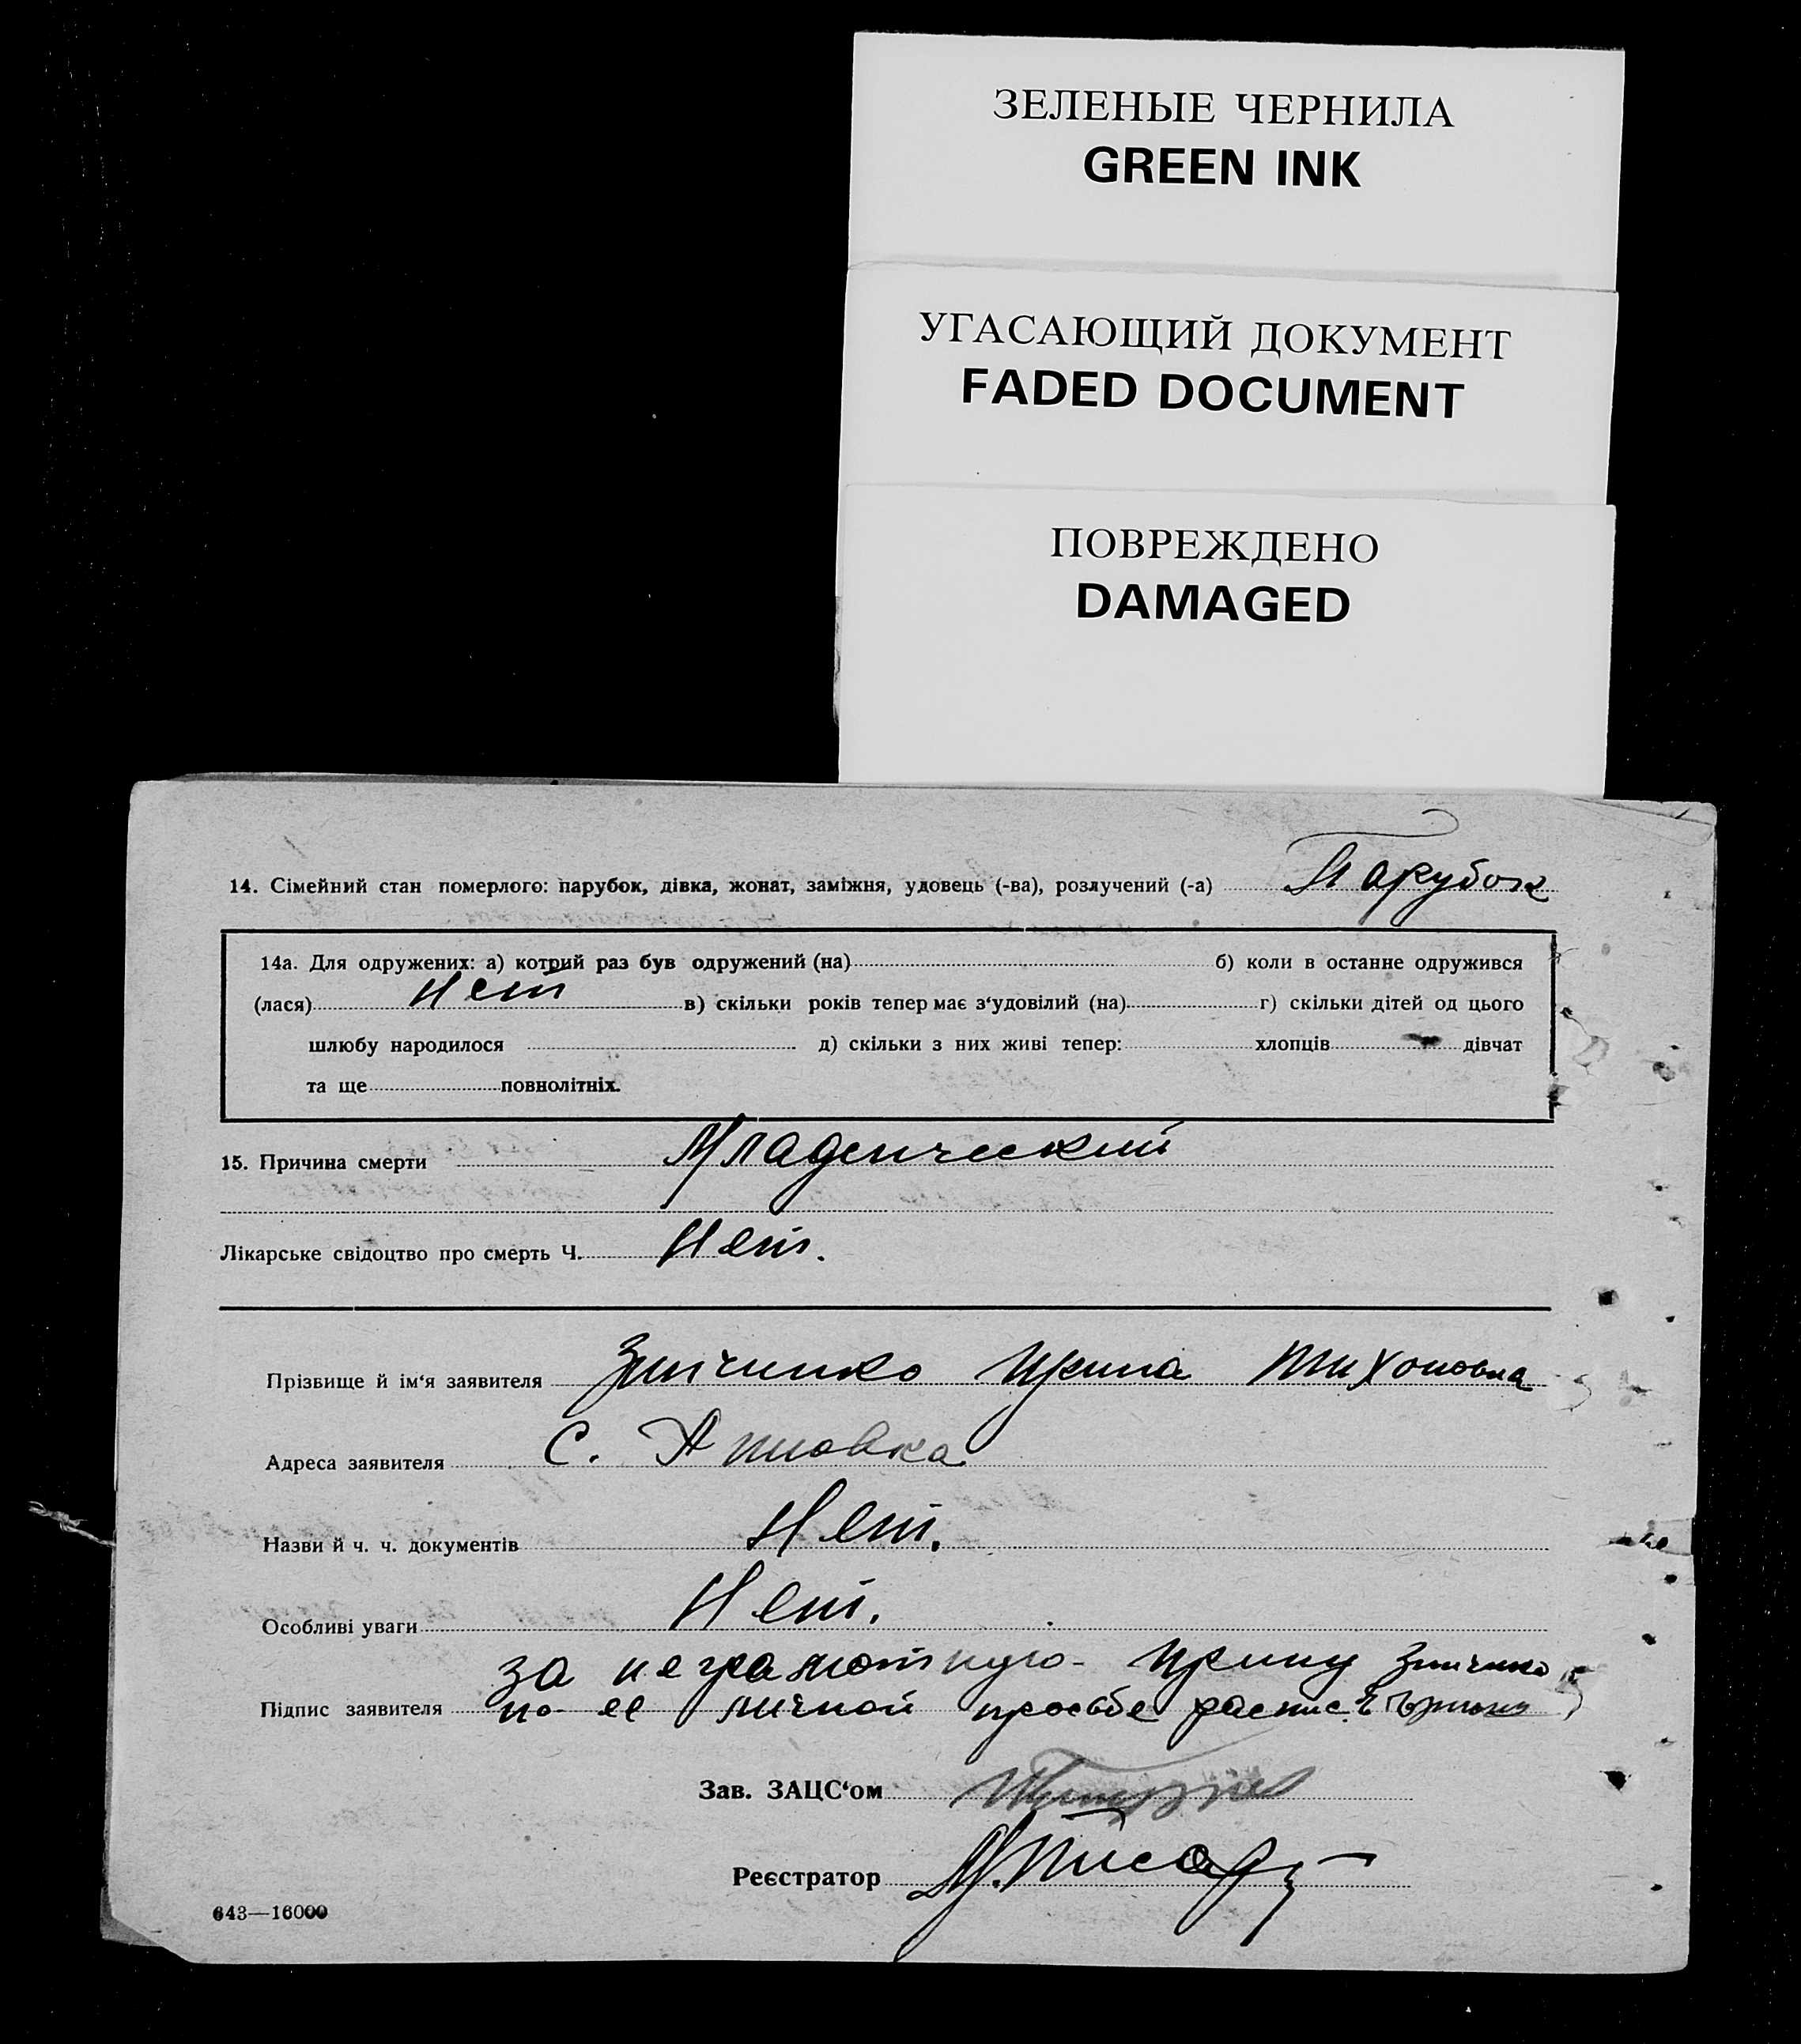 ЗЕЛЕНЫЕ ЧЕРНИЛА
GREEN INK
УГАСАЮЩИЙ ДОКУМЕНТ
FADED DOCUMENT
ПОВРЕЖДЕНО
DAMAGED
14. Сімейний стан померлого: парубок, дівка, жонат, заміжня, удовець (-ва), розлучений (-а) Парубок
14а. Для одружених: а) котрий раз був одружений (на) б) коли в останнє одружився
(лася) Нет в) скільки років тепер має з‘удовілий (на) г) скільки дітей од цього
шлюбу народилося д) скільки з них живі тепер: хлопців дівчат
та ще повнолітніх.
15. Причина смерти Младенческий
Лікарське свідоцтво про смерть Ч. Нет.
Прізвище й ім‘я заявителя Зинченко Ирина Тихоновна
Адреса заявителя С.
Назви й ч. ч. документів Нет.
Особливі уваги Нет.
за неграмотную Ирину Зинченко
Підпис заявителя по ее личной просьбе распис.
Зав. ЗАЦС‘ом
Реєстратор
643—16000